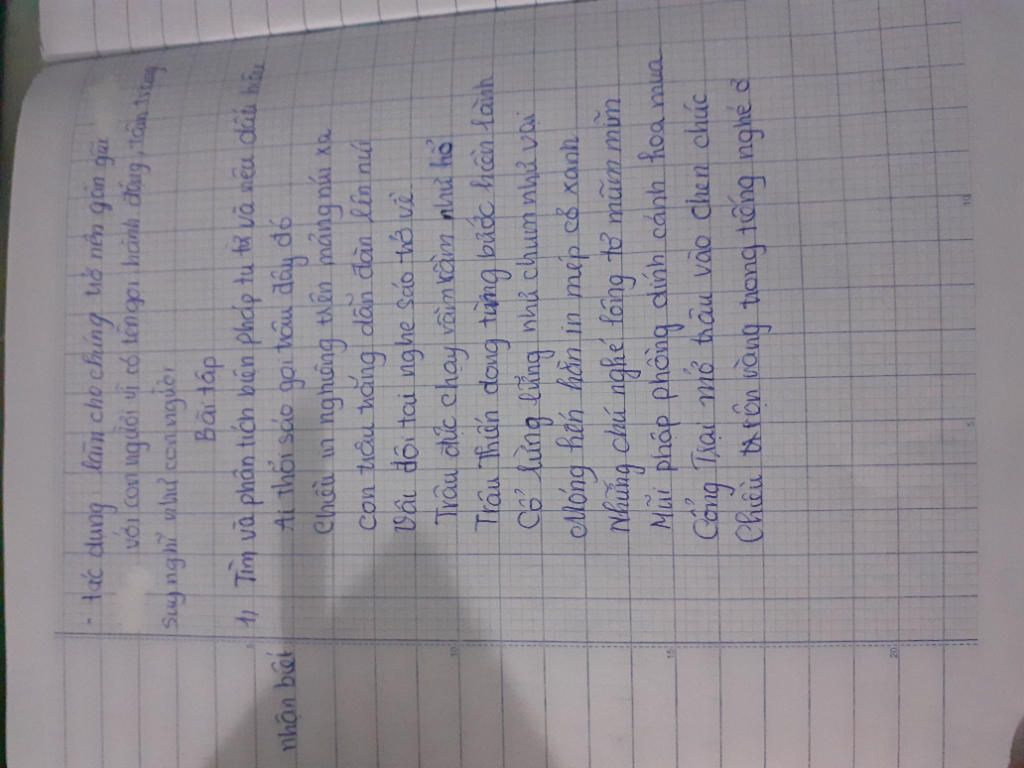 - tác dụng: làm cho chúng trở nên gần gũi
với con người vì có tên gọi, hành động, tâm trạng
suy nghĩ như con người
Bài tập
1, Tìm và phân tích biện pháp tu từ và nêu dấu hiệu
nhận biết
Ai thổi sáo gọi trâu đâu đó
Chiều in nghiêng trên mảng núi xa
Con trâu trắng dẫn đàn lên núi
Vểnh đôi tai nghe sáo trở về
Trâu đực chạy rầm rầm như hổ
Trâu thiến dong từng bước hiền lành
Cổ lừng lững như chum như vại
Móng hến hằn in mép cỏ xanh
Những chú nghé lông tơ mũm mĩm
Mũi phập phồng dính cánh hoa mua
Cổng Trại mở trâu vào chen chúc
Chiều rộn vàng trong tiếng nghé ơ